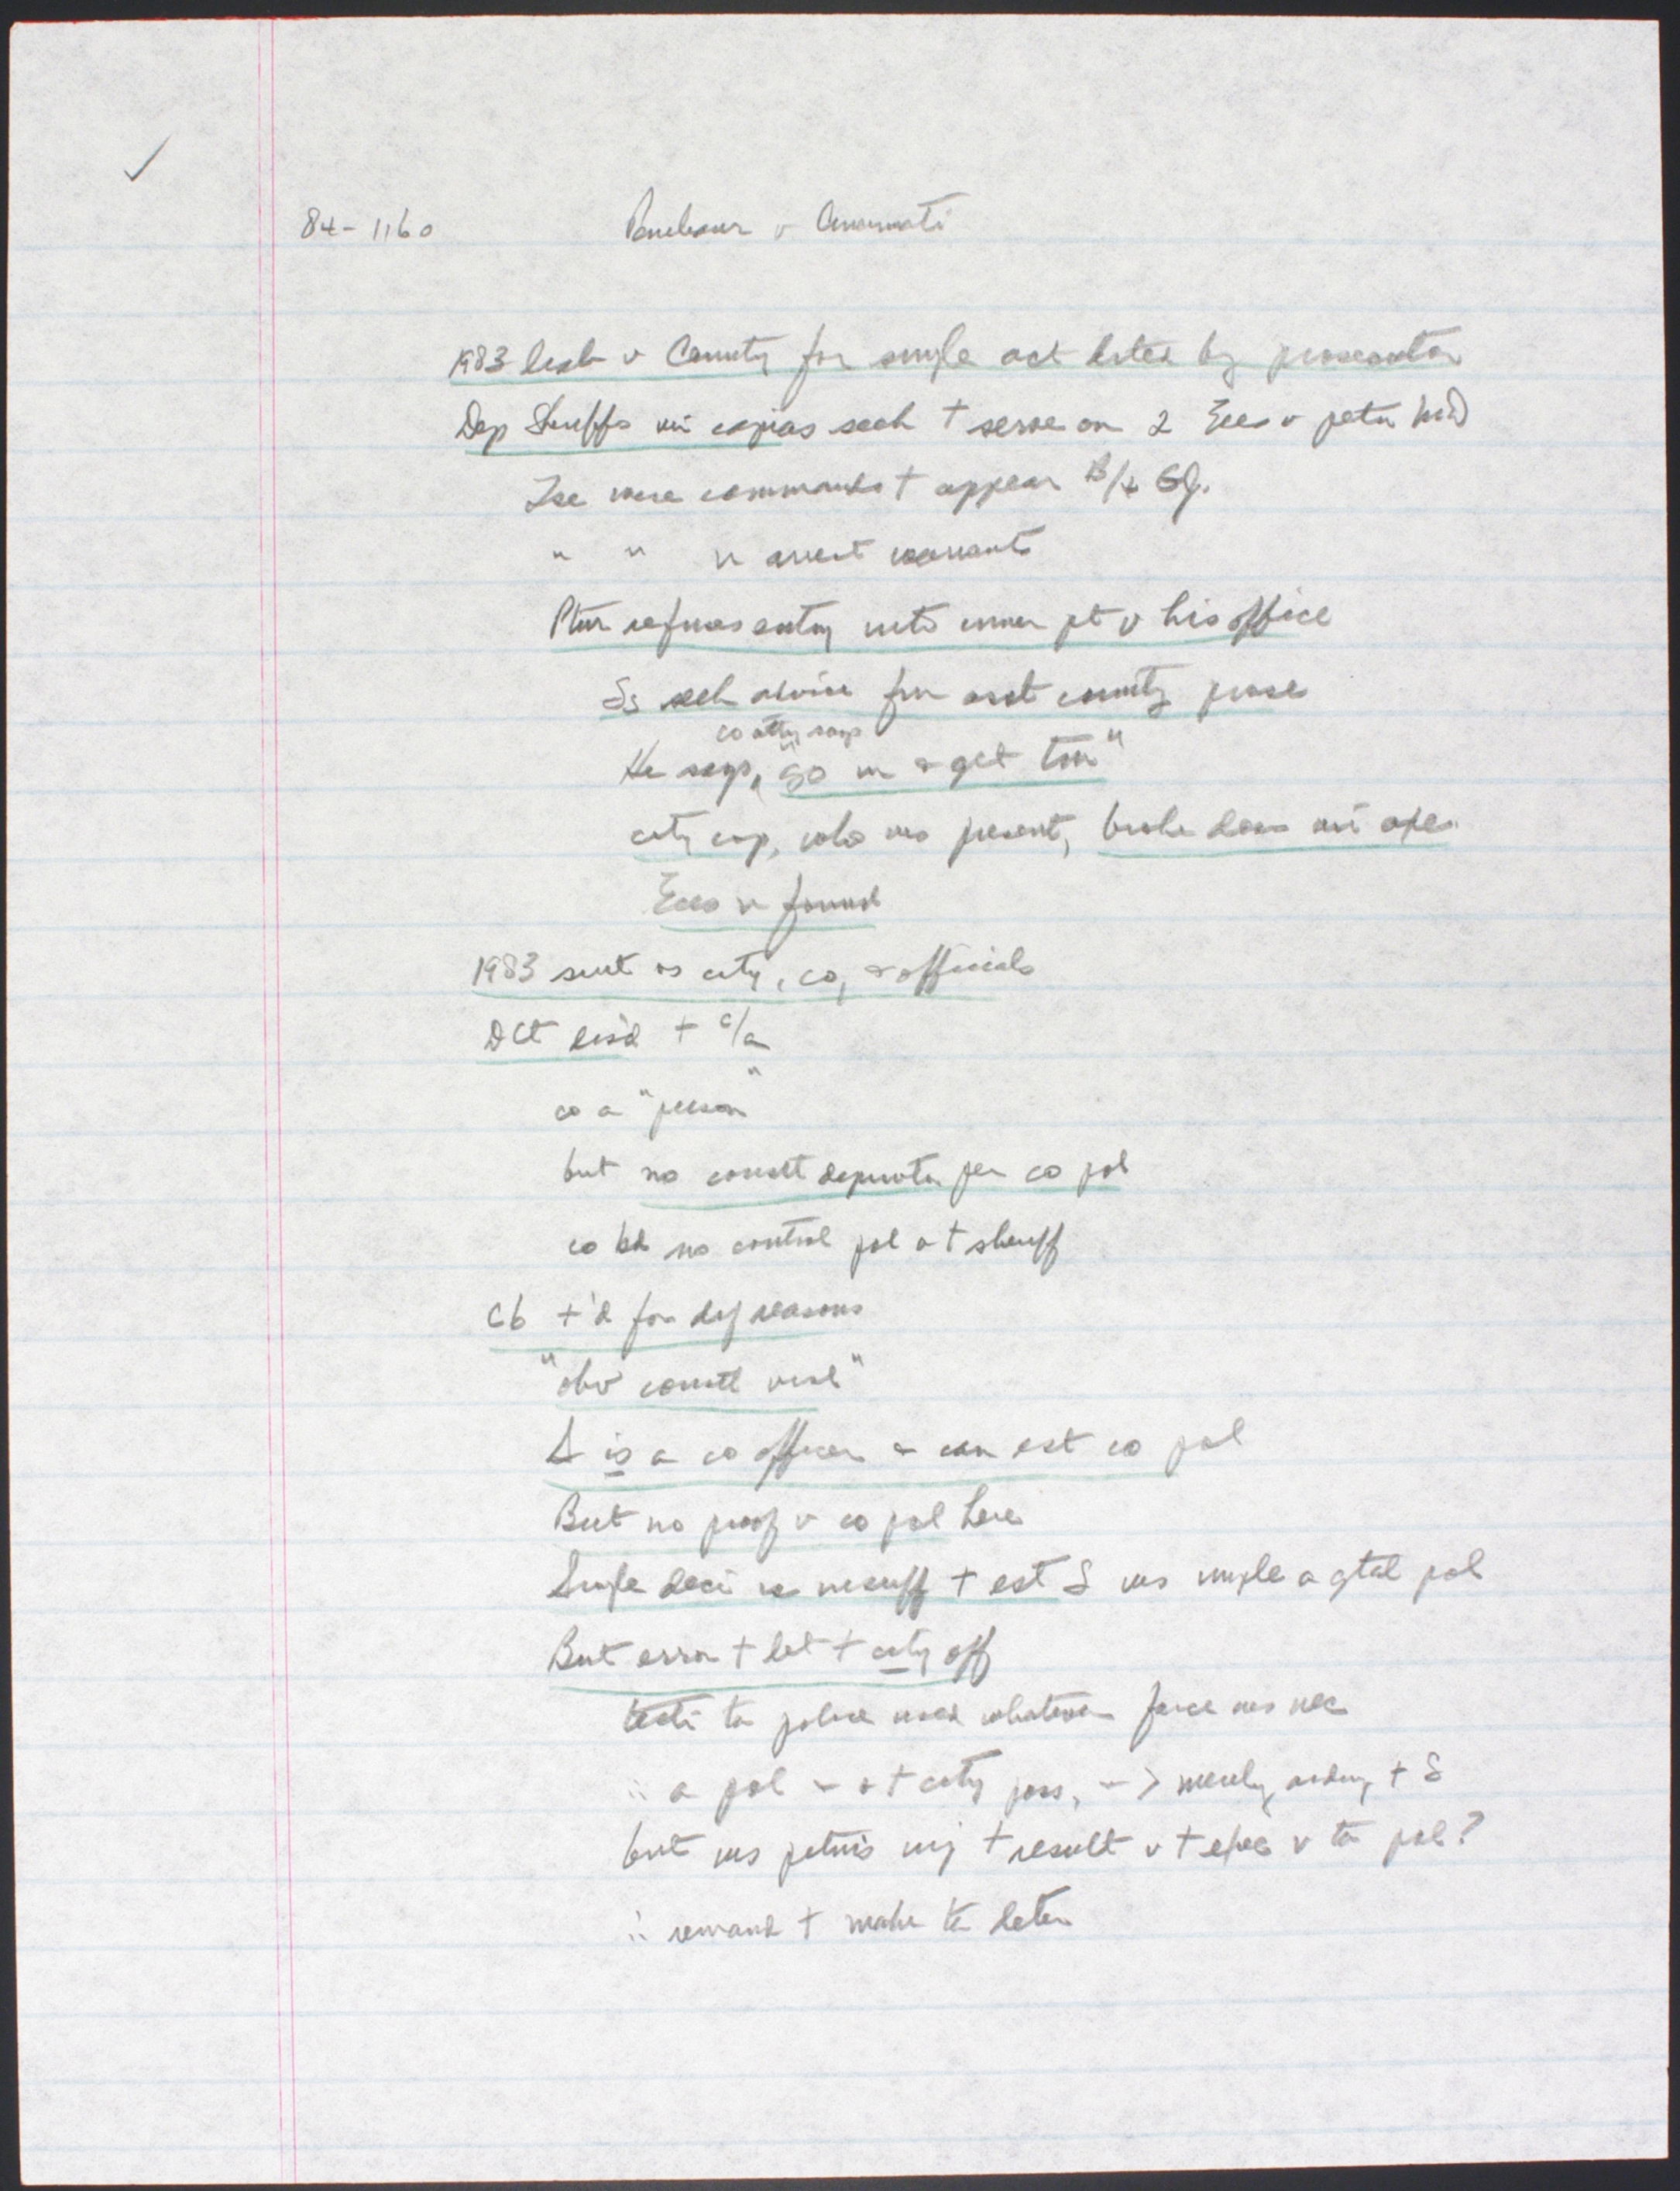 84-1160 Pembaur v Cincinnati
1983 liab v County for single act dited by prosecutor
Dep Sheriffs wi capias seek + serve on 2 Ees v petr MD
Tse were commands + appear B/4 GJ.
" " n arrest warrants
Ptnr refuses entry into inner pt v his office
Ss seek advice frm asst county prose
co atty says
He says, "go in & get tm"
city cop, who ws present, broke door wi axe.
Ees n found
1983 suit vs city, co, & officials
DCt dis'd + c/a
co a "person"
but no constl deprivtn per co pol
co bd no control pol o + sheriff
C6 +'d for dif reasons
"obv constl viol"
S is a co officer & can est co pol
But no proof v co pol here
Single deci is insuff + est S ws imple a gtal pol
But error + let + city off
testi tt police used whatever force ws nec
∴ a pol o + city pos, > merely aiding + S
but ws petnr's inj + result v + exec v tt pol?
∴ remand + make tt deter